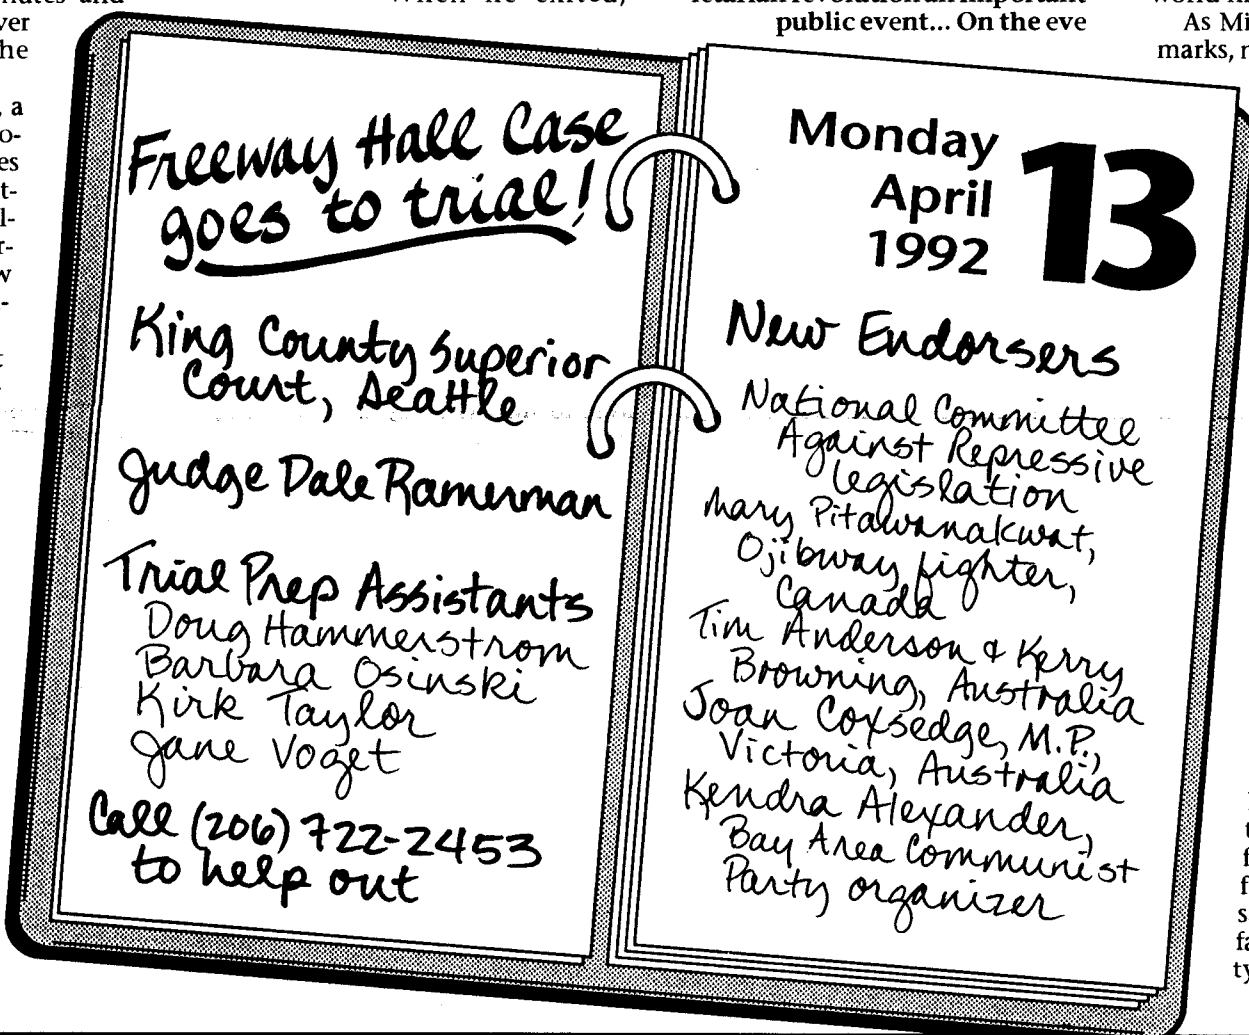 public event... On the eve
Freeway Hall Case
goes to trial!
King County Superior
Court, Seattle
Judge Dale Ramerman
Trial Prep Assistants
Doug Hammerstrom
Barbara Osinski
Kirk Taylor
Jane Voget
Call (206) 722-2453
to help out
Monday
April
1992
13
New Endorsers
National Committee
Against Repressive
legislation
Mary Pitawanakwat,
Ojibway fighter,
Canada
Tim Anderson & Kerry
Browning, Australia
Joan Coxsedge, M.P.,
Victoria, Australia
Kendra Alexander,
Bay Area Communist
Party organizer
As Mi
marks, r